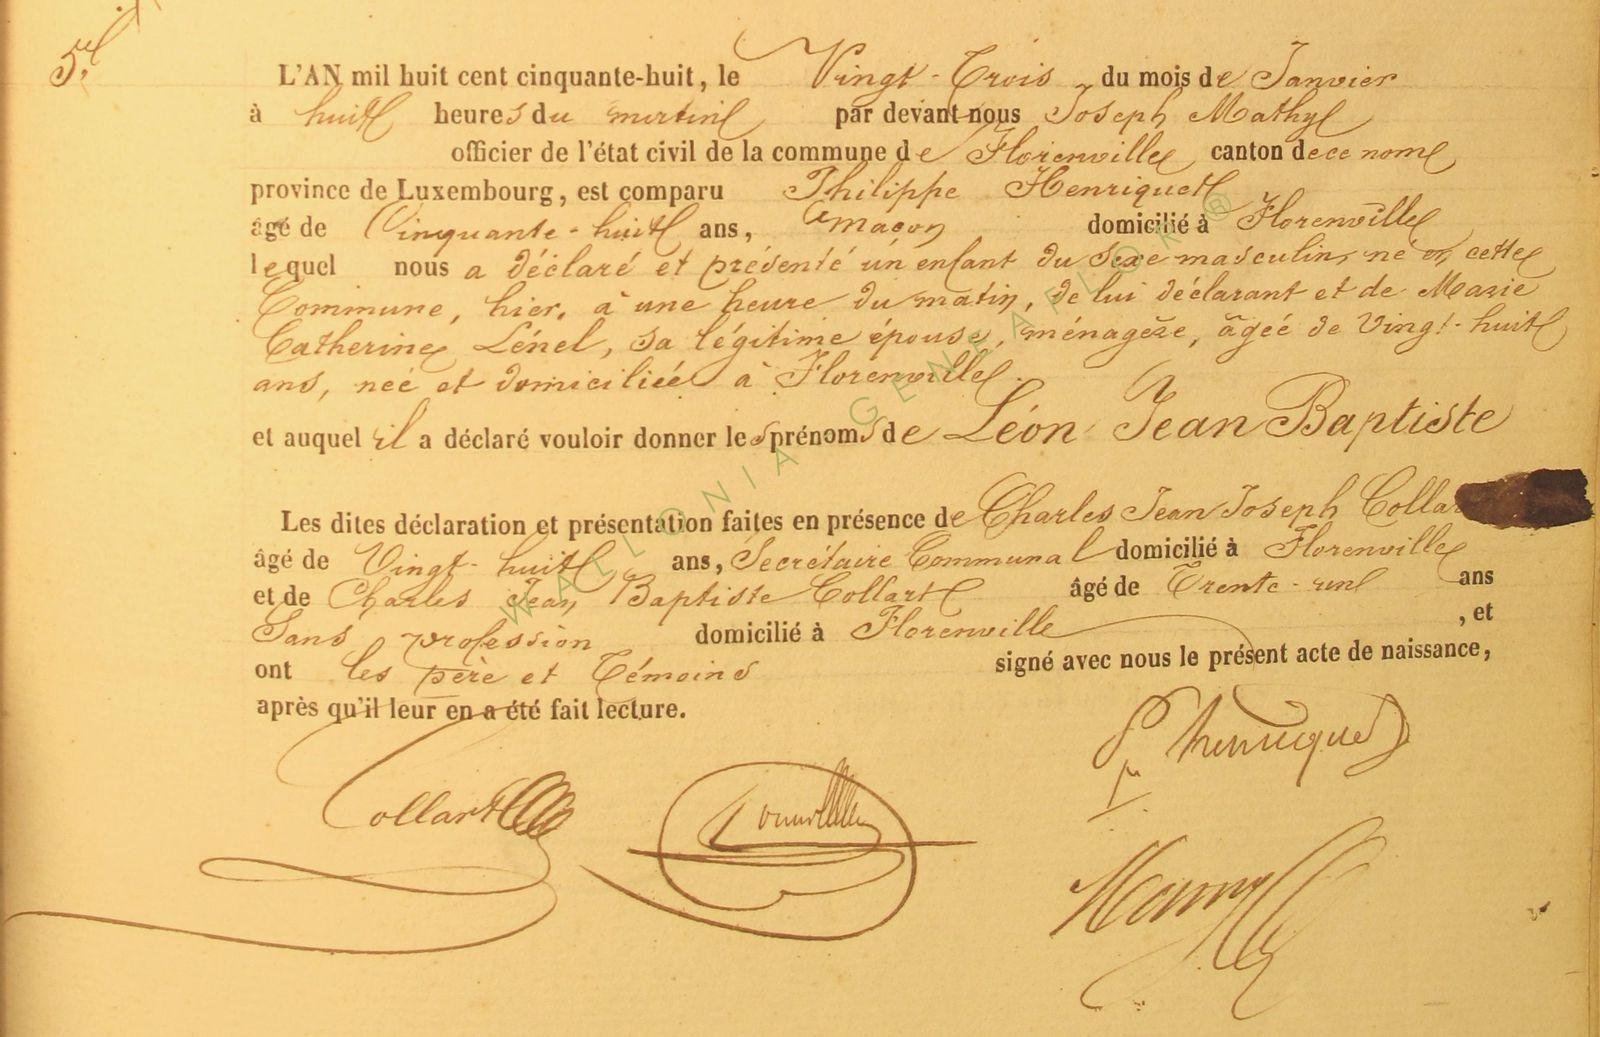 5.
L'AN mil huit cent cinquante-huit, le Vingt-Trois du mois de Janvier
à huit heures du matin par devant nous Joseph Mathy
officier de l'état civil de la commune de Florenville, canton de ce nom
province de Luxembourg, est comparu Philippe Henriquet
âgé de Cinquante-huit ans, maçon domicilié à Florenville
lequel nous a déclaré et présenté un enfant du sexe masculin, né en cette
Commune, hier, à une heure du matin, de lui déclarant et de Marie
Catherine Lénel, sa légitime épouse, ménagère, âgée de Vingt-huit
ans, née et domiciliée à Florenville.
et auquel il a déclaré vouloir donner les prénoms de Léon Jean Baptiste
Les dites déclaration et présentation faites en présence de Charles Jean Joseph Collar
âgé de Vingt-huit ans, Secrétaire Communal domicilié à Florenville
et de Charles Jean Baptiste Collart âgé de Trente-un ans
Sans profession domicilié à Florenville , et
ont les père et Témoins signé avec nous le présent acte de naissance,
après qu'il leur en a été fait lecture.
P henriquet
Collart
WALLONIA GENEAFLOR ®